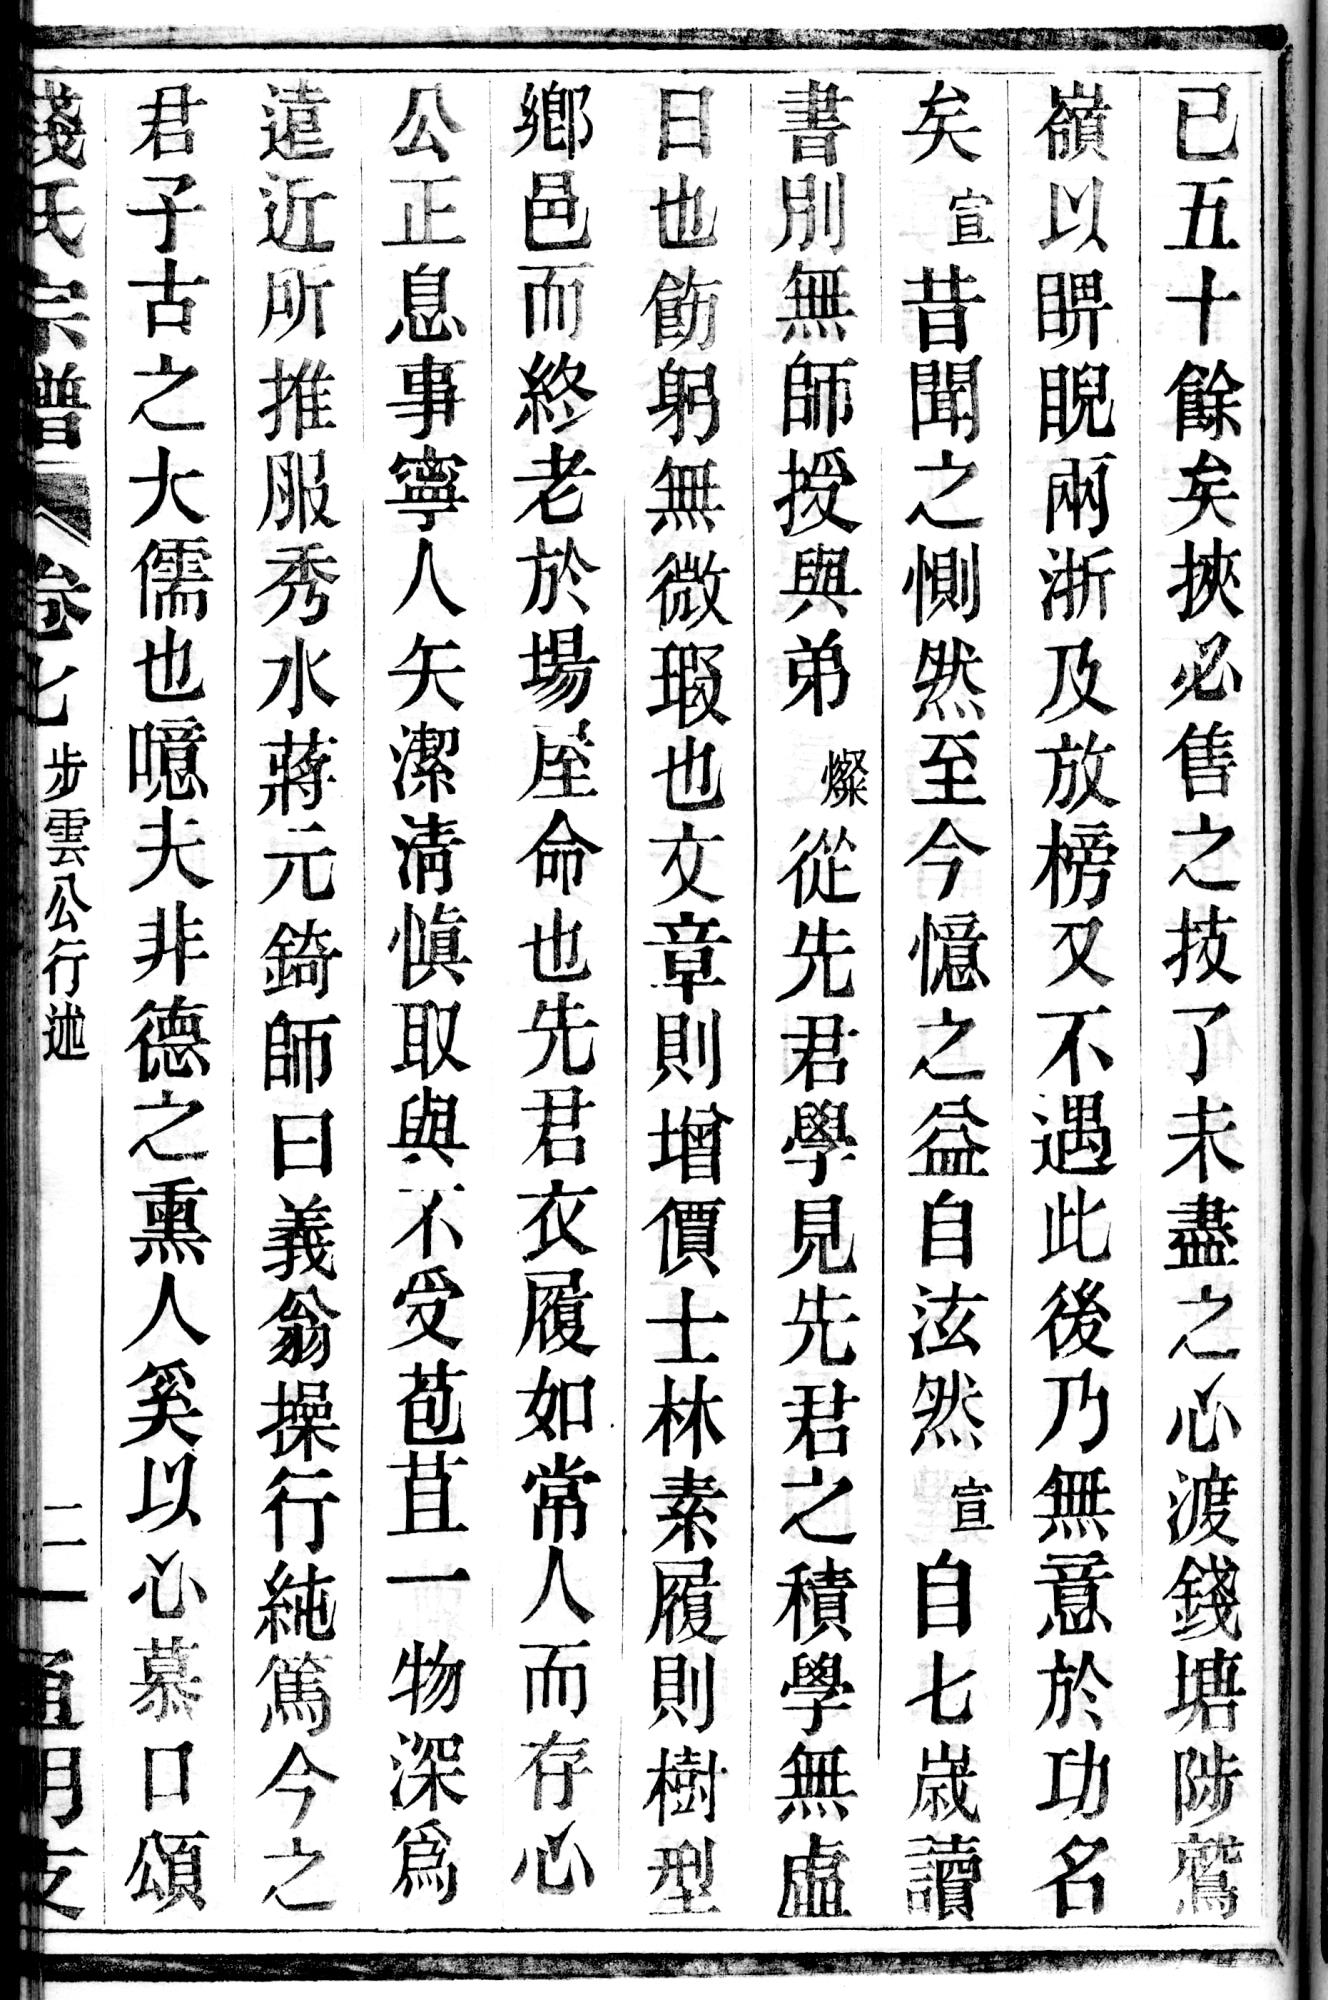 已五十餘矣挾必售之技了未盡之心渡錢塘陟鷲
嶺以睥睨兩浙及放榜又不遇此後乃無意於功名
矣宣昔聞之惻然至今憶之益自泫然宣自七嵗讀
書別無師授與弟燦從先君學見先君之積學無虛
日也飭躬無微瑕也文章則增價士林素履則樹型
鄉邑而終老於場屋命也先君衣履如常人而存心
公正息事寧人矢潔清慎取與不受苞苴一物深爲
遠近所推服秀水蔣元錡師曰義翁操行純篤今之
君子古之大儒也噫夫非德之熏人奚以心慕口頌
錢氏宗譜 卷七 步雲公行述 二 通明支